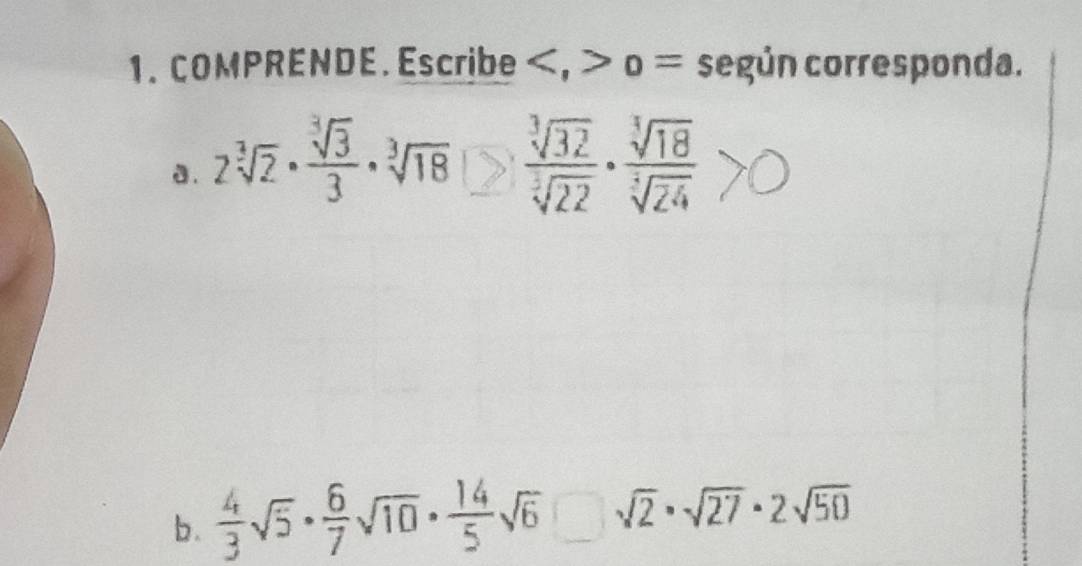 1. COMPRENDE. Escribe <, > o = según corresponda.
a. 2∛2 · ∛3/3 · ∛18 > ∛32/∛22 · ∛18/∛24 >0
b. 4/3 √5 · 6/7 √10 · 14/5 √6 □ √2 · √27 · 2√50